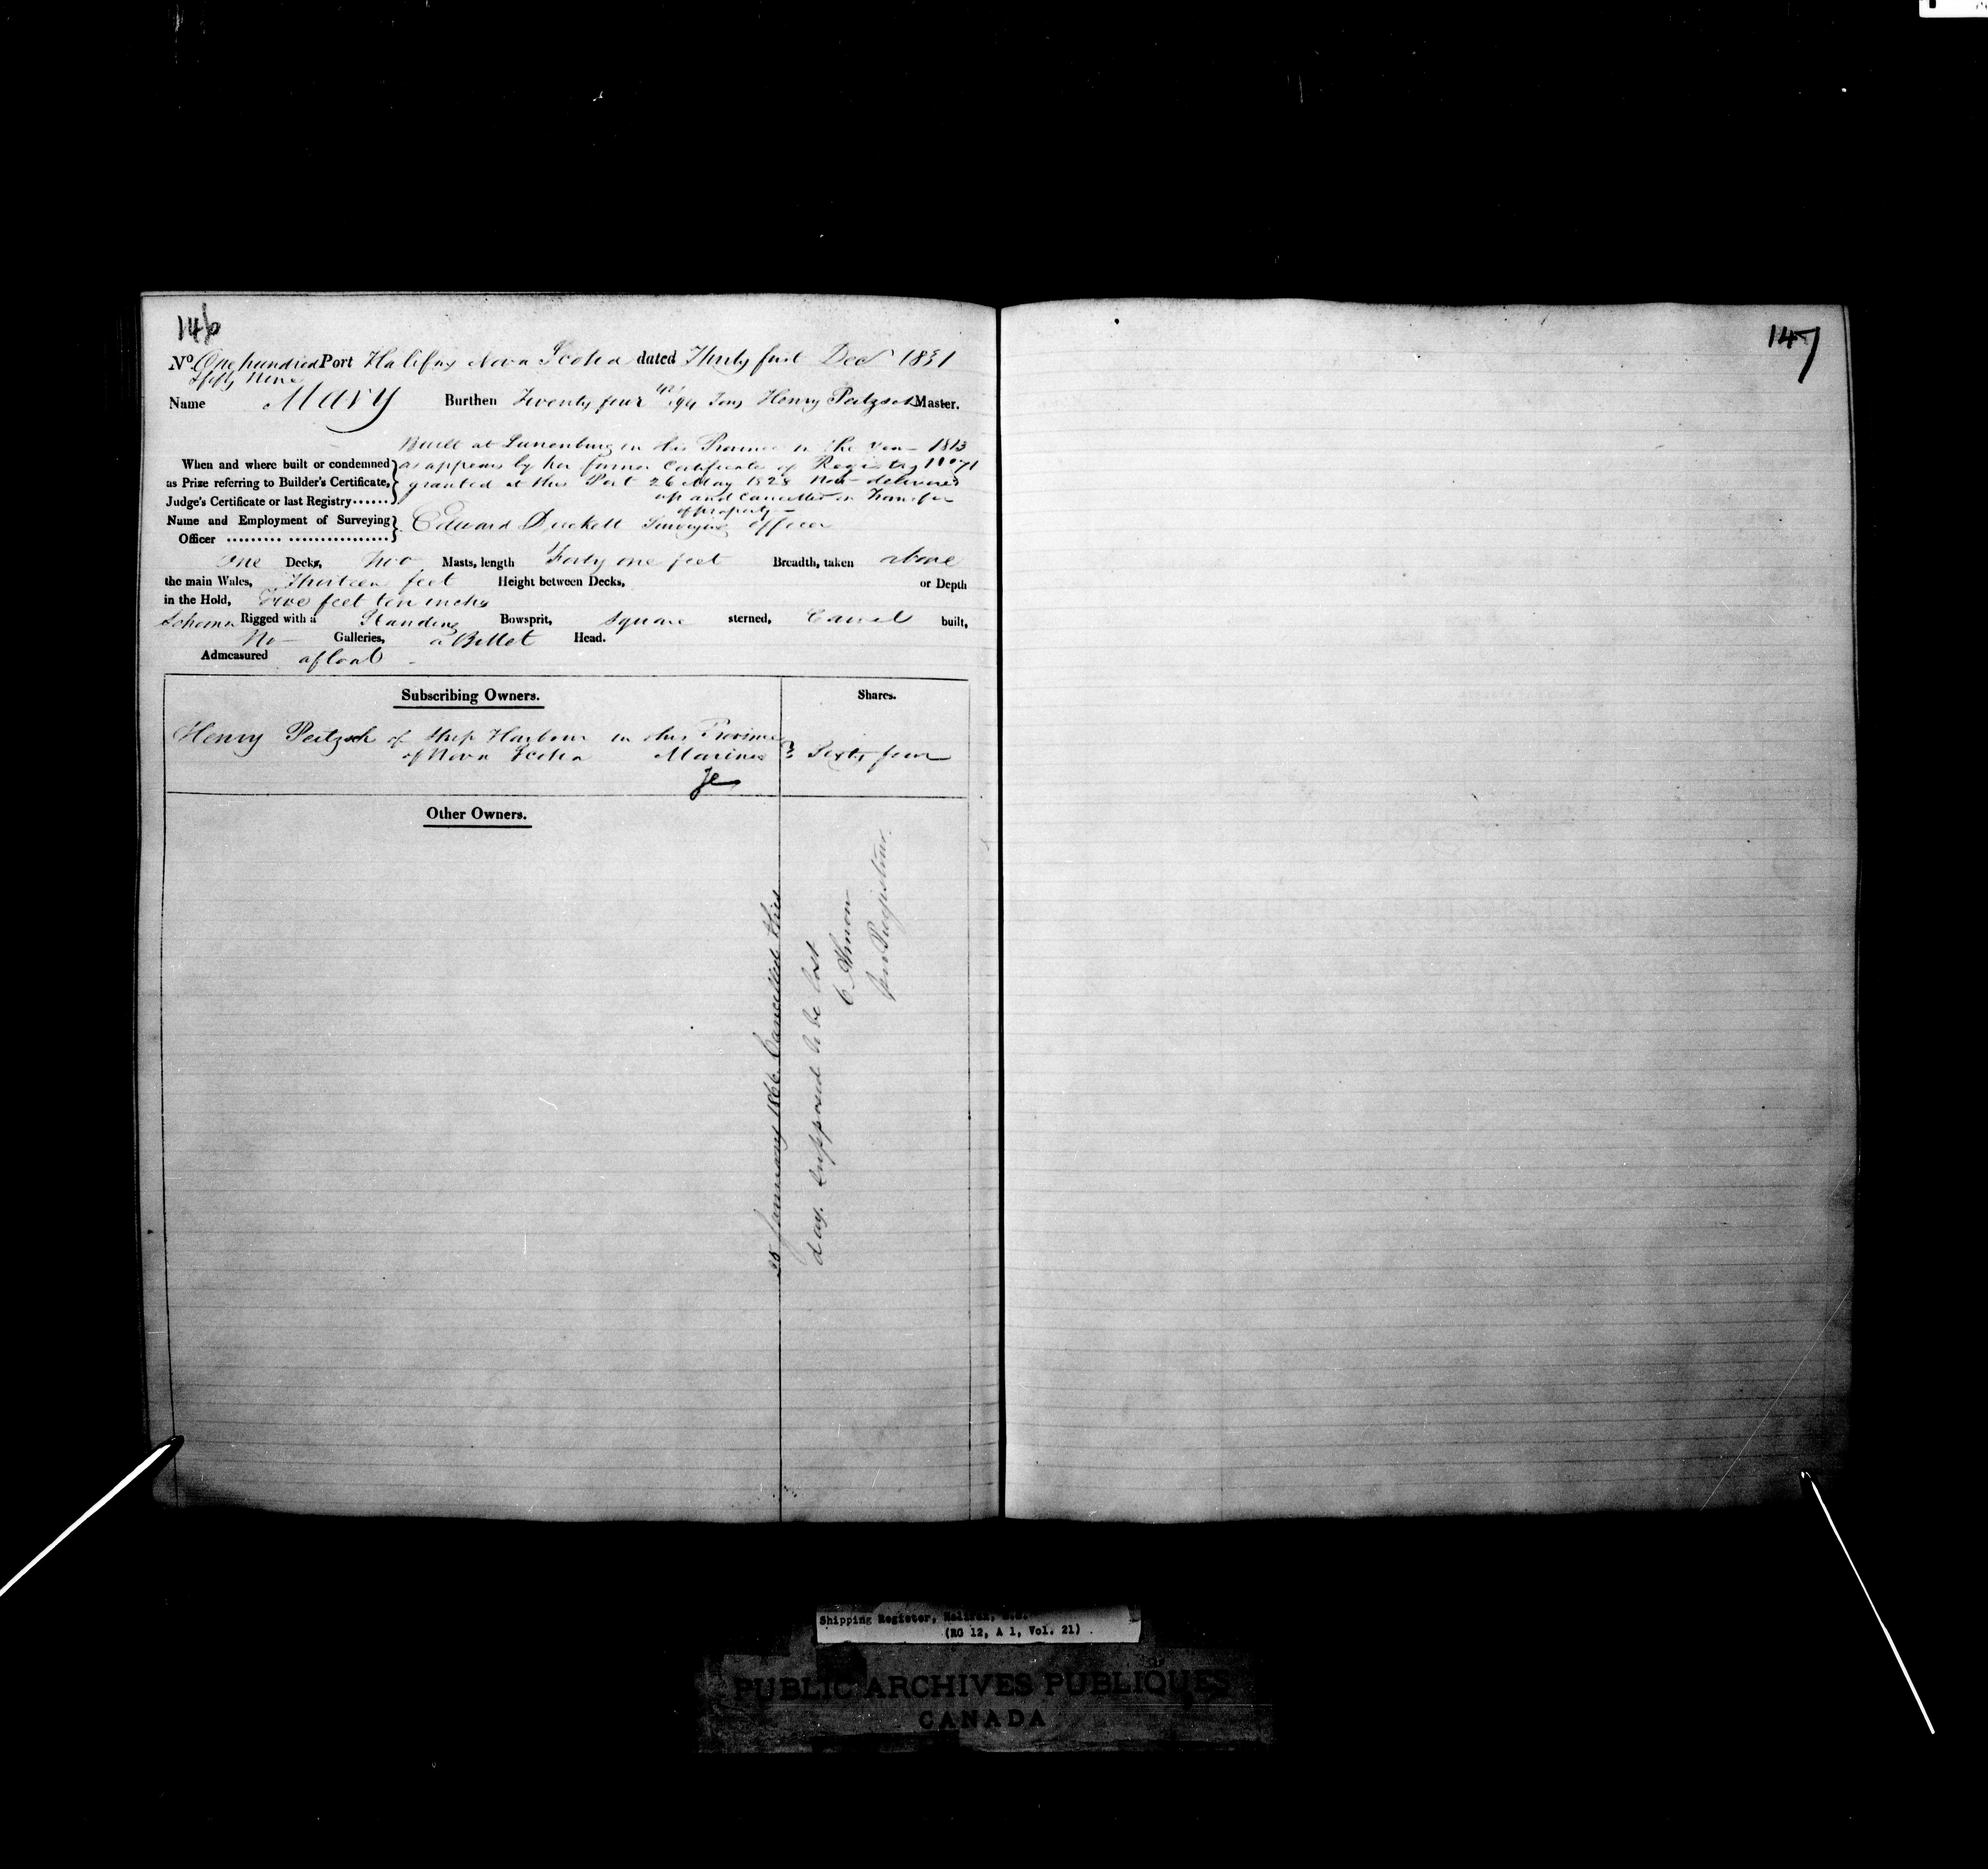 146
147
No. One hundred Port Halifax Nova Scotia dated Thirty first Decr 1831
& fifty Nine
Name Mary Burthen Twenty four 42/94 Tons Henry Peitzsch Master.
Built at Lunenburg in this Province in the Year 1813
When and where built or condemned as appears by her former Certificate of Registry No 71
as Prize referring to Builder's Certificate, granted at this Port 26 May 1828 Now delivered
Judge's Certificate or last Registry...... up and Cancelled on Transfer
of property
Name and Employment of Surveying Edward Duckett Surveying officer
Officer ......... ................
One Decks, Two Masts, length Forty one feet Breadth, taken above
the main Wales, Thirteen feet Height between Decks, or Depth
in the Hold, Five feet ten inches
Schooner Rigged with a Standing Bowsprit, Square sterned, Carvel built,
No Galleries, a Billet Head.
Admeasured afloat
Subscribing Owners. Shares.
Henry Peitzsch of Ship Harbour in this Province
of Nova Scotia Mariner } Sixty four
Other Owners.
25 January 1866 Cancelled this
day. supposed to be lost
C Almon
Registrar
Shipping Register, Halifax, N.S.
(RG 12, A 1, Vol. 21)
PUBLIC ARCHIVES PUBLIQUES
CANADA